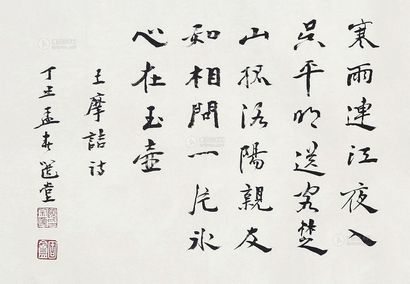 寒雨連江夜入
吳平明送客楚
山孤洛陽親友
如相問一片冰
心在玉壺
王摩詰詩
丁丑孟春選堂